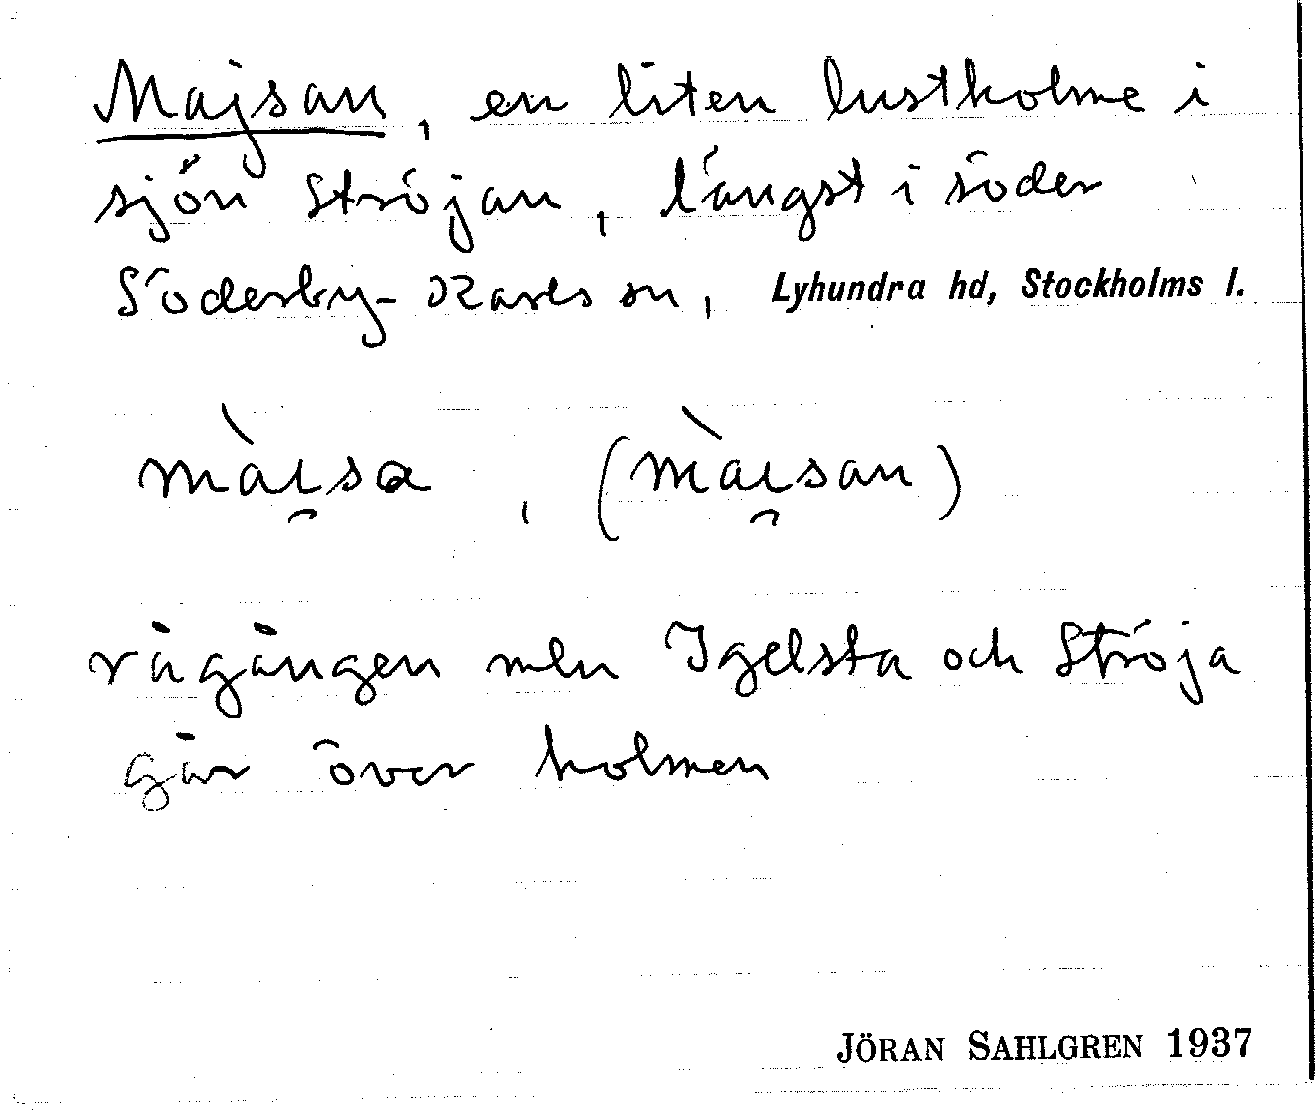 Majsan, en liten lustholme i
sjön Ströjan, längst i söder
Söderby-Karlsson, Lyhundra hd, Stockholms l.
màı̯sa, (màı̯san)
rågången mln Igelsta och Ströja
går över holmen
JÖRAN SAHLGREN 1937